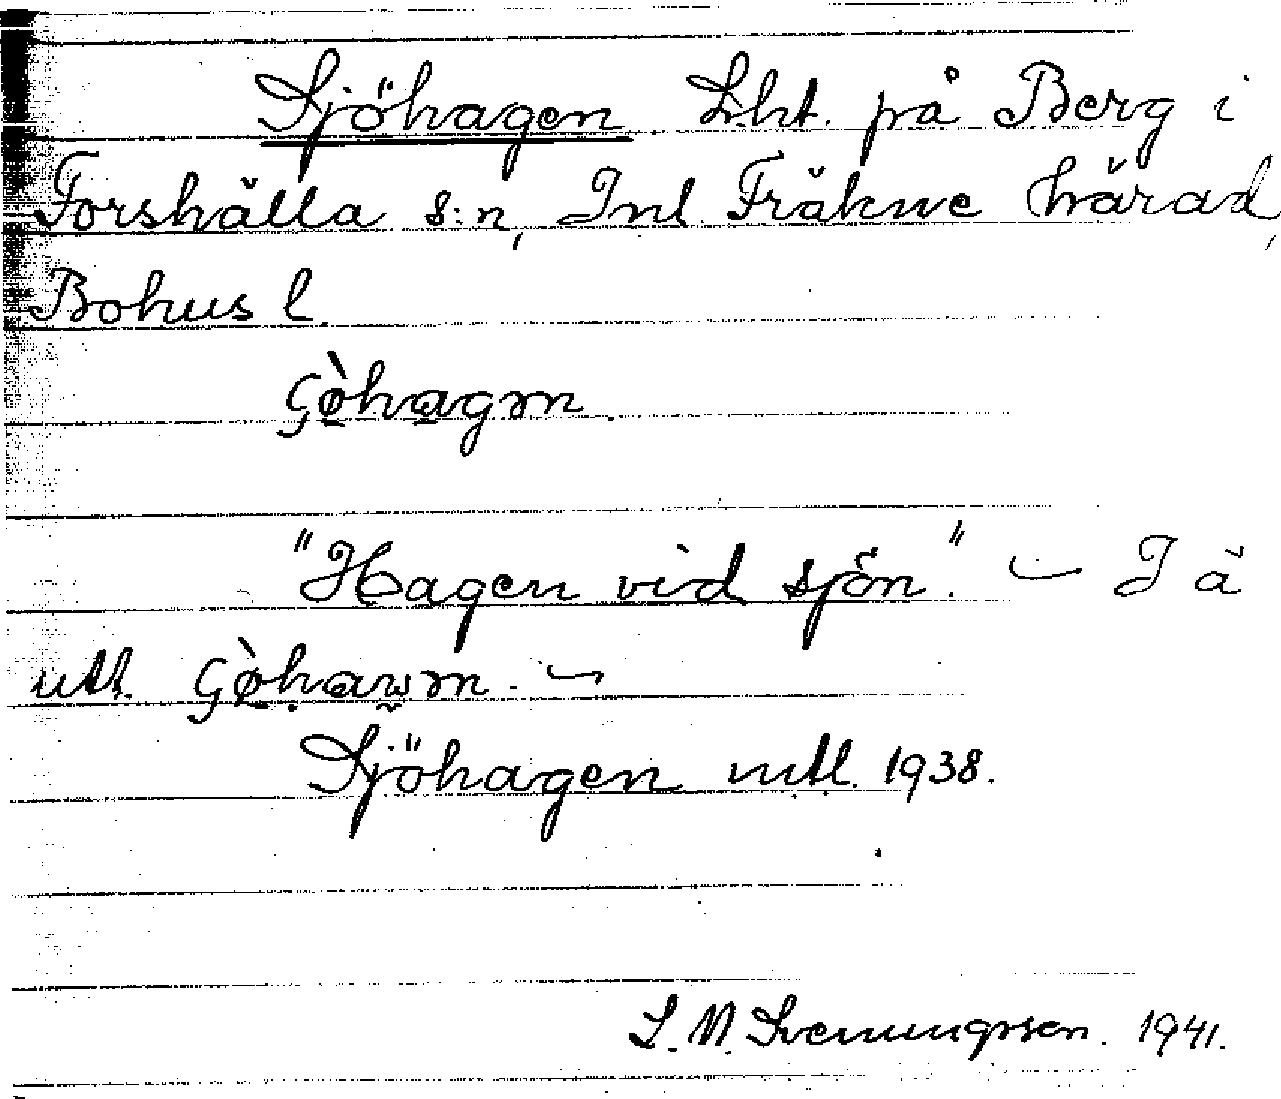 Sjöhagen Lht. på Berg i
Forshälla s:n, Inl. Fräkne härad,
Bohus l.
"Hagen vid sjön." – I ä
utt.
Sjöhagen mtl. 1938.
S. N. Svenungsson. 1941.